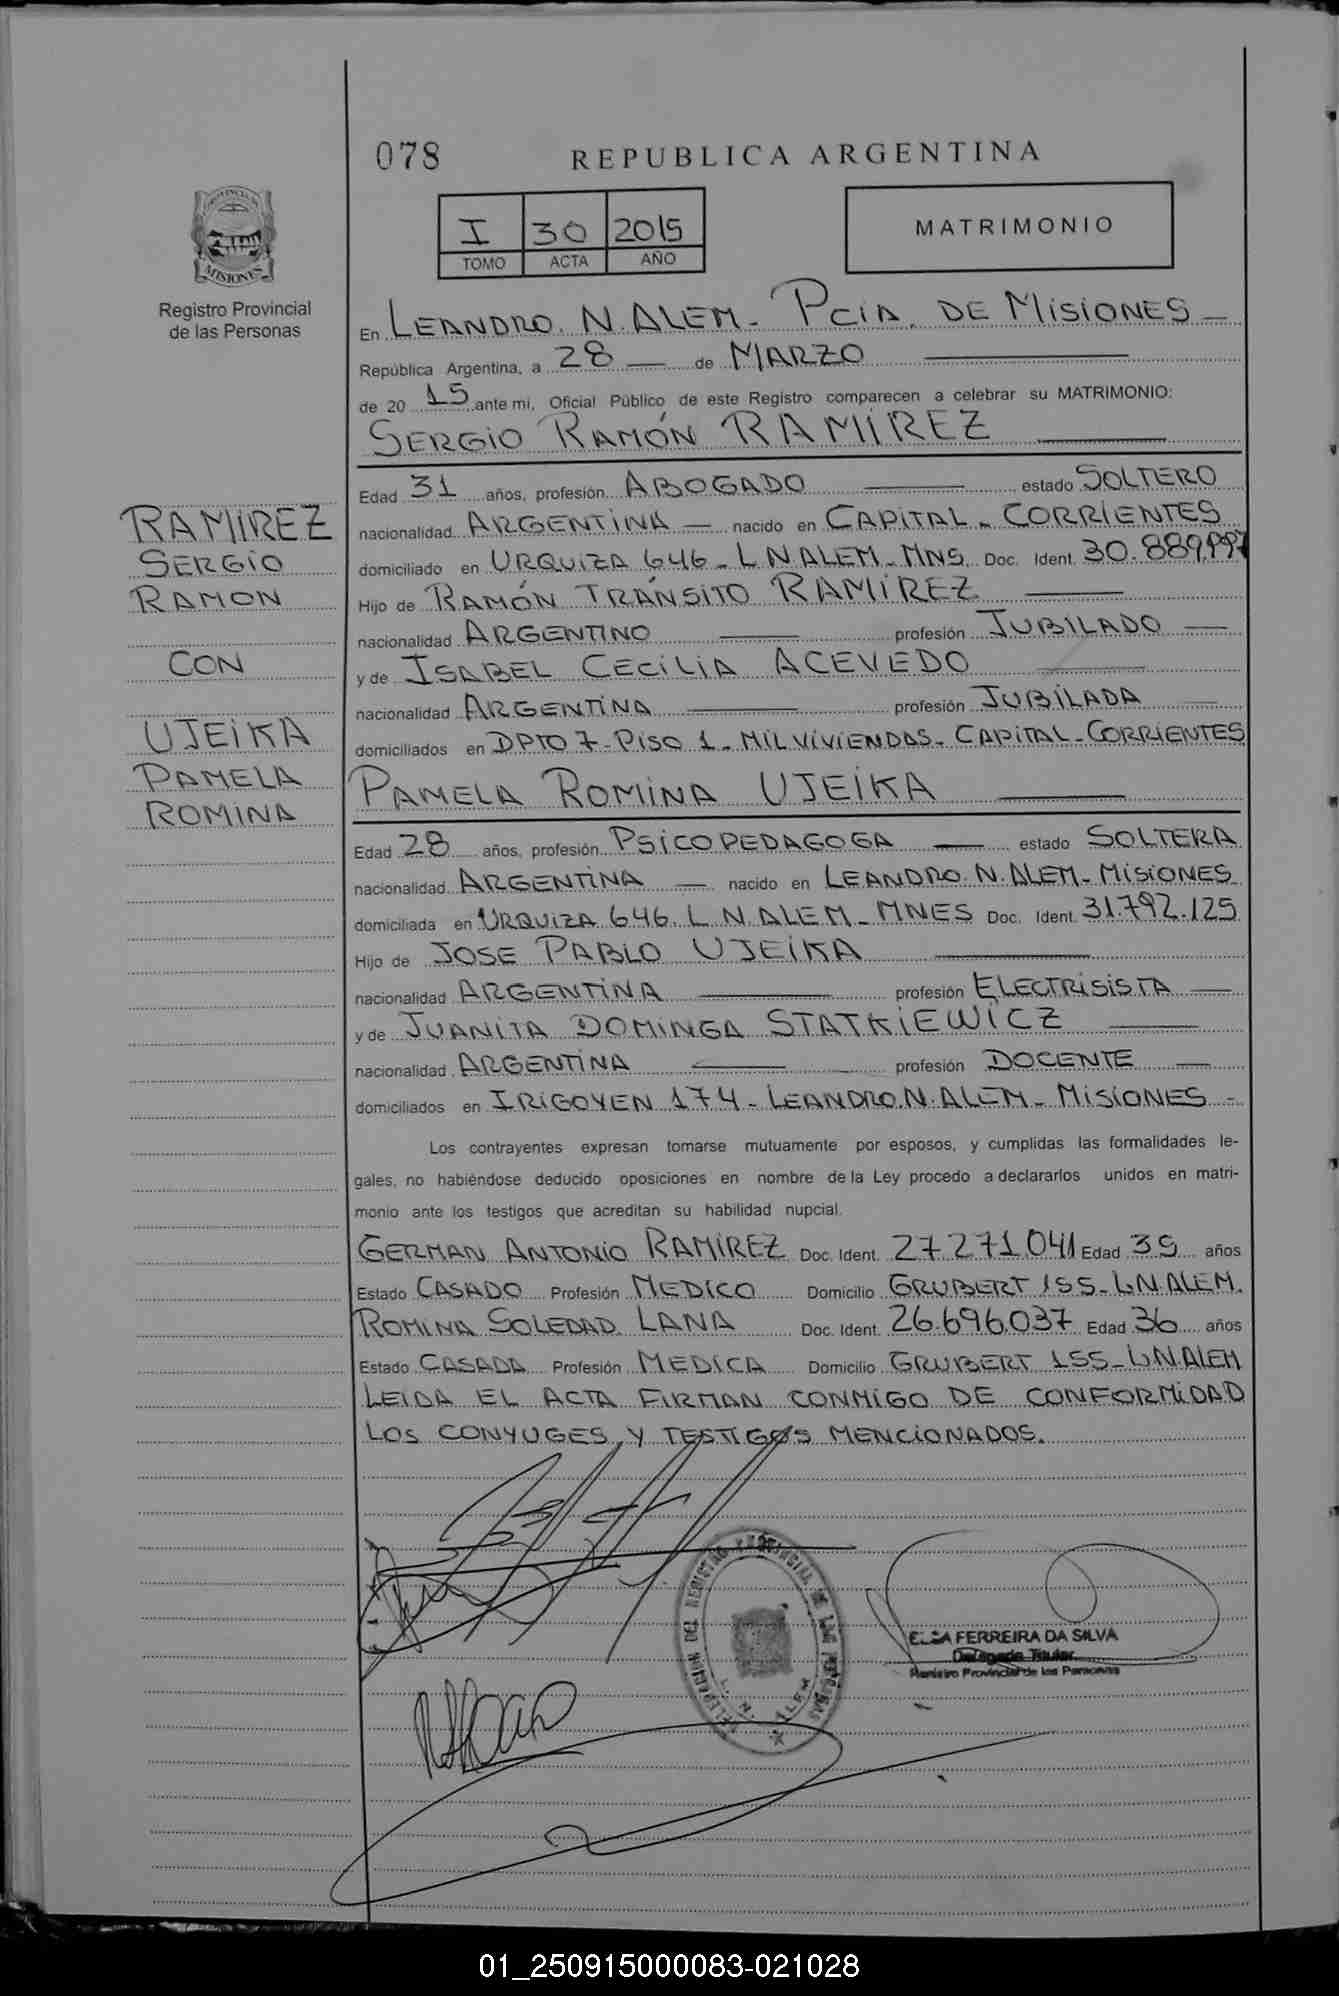 078 REPUBLICA ARGENTINA
PROVINCIA DE
MISIONES
Registro Provincial
de las Personas
I 30 2015
TOMO ACTA AÑO
MATRIMONIO
En LEANDRO. N. ALEM - PCIA. DE MISIONES
República Argentina, a 28 de MARZO
de 2015 ante mi, Oficial Público de este Registro comparecen a celebrar su MATRIMONIO:
SERGIO RAMÓN RAMIREZ
Edad 31 años, profesión ABOGADO estado SOLTERO
nacionalidad ARGENTINA nacido en CAPITAL - CORRIENTES
domiciliado en URQUIZA 646 - L N ALEM - MNS. Doc. Ident. 30.889.997
Hijo de RAMÓN TRÁNSITO RAMIREZ
nacionalidad ARGENTINO profesión JUBILADO
y de ISABEL CECILIA ACEVEDO
nacionalidad ARGENTINA profesión JUBILADA
domiciliados en DPTO 7 - PISO 1 - MIL VIVIENDAS - CAPITAL - CORRIENTES
PAMELA ROMINA UJEIKA
Edad 28 años, profesión PSICOPEDAGOGA estado SOLTERA
nacionalidad ARGENTINA nacido en LEANDRO. N. ALEM - MISIONES
domiciliada en URQUIZA 646. L. N. ALEM - MNES Doc. Ident. 31.792.125
Hijo de JOSE PABLO UJEIKA
nacionalidad ARGENTINA profesión ELECTRISISTA
y de JUANITA DOMINGA STATKIEWICZ
nacionalidad ARGENTINA profesión DOCENTE
domiciliados en IRIGOYEN 174 - LEANDRO. N. ALEM - MISIONES -
Los contrayentes expresan tomarse mutuamente por esposos, y cumplidas las formalidades le-
gales, no habiéndose deducido oposiciones en nombre de la Ley procedo a declararlos unidos en matri-
monio ante los testigos que acreditan su habilidad nupcial.
GERMAN ANTONIO RAMIREZ Doc. Ident. 27.271.041 Edad 35 años
Estado CASADO Profesión MEDICO Domicilio GRUBERT 155 - L.N. ALEM.
ROMINA SOLEDAD LANA Doc. Ident. 26.696.037 Edad 36 años
Estado CASADA Profesión MEDICA Domicilio GRUBERT 155 - L.N. ALEM
LEIDA EL ACTA FIRMAN CONMIGO DE CONFORMIDAD
LOS CONYUGES Y TESTIGOS MENCIONADOS.
RAMIREZ
SERGIO
RAMON
CON
UJEIKA
PAMELA
ROMINA
DELEGACION DEL REGISTRO PROVINCIAL DE LAS PERSONAS
L. N. ALEM
ELSA FERREIRA DA SILVA
Delegada Titular
Registro Provincial de las Personas
01_250915000083-021028